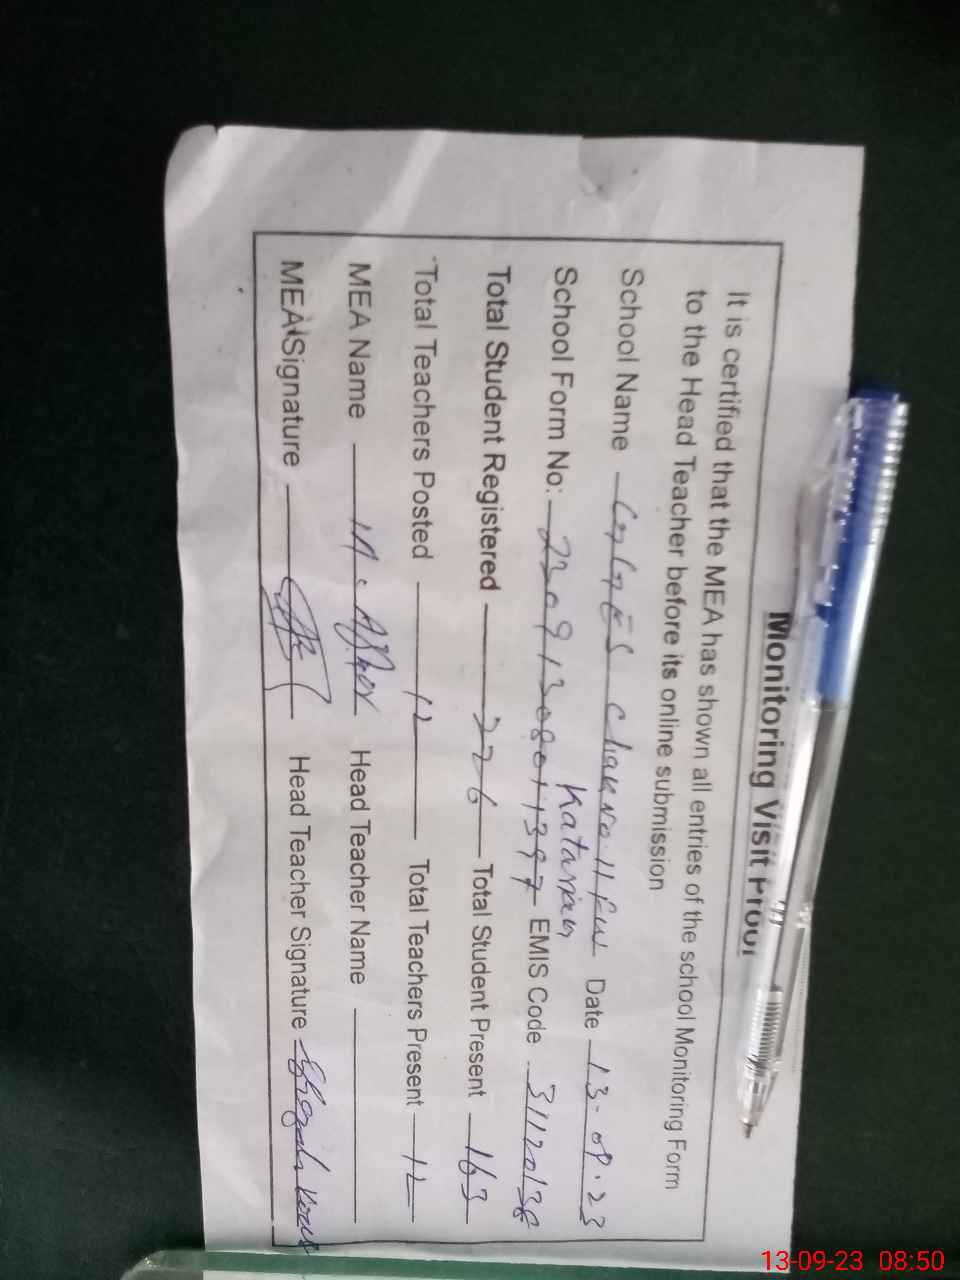 Monitoring Visit Proof
It is certified that the MEA has shown all entries of the school Monitoring Form
to the Head Teacher before its online submission
School Name GGES Chak No. 11 FW Date 13-09-23
School Form No: EMIS Code 31120138
Total Student Registered 226 Total Student Present 163
Total Teachers Posted 12 Total Teachers Present 12
MEA Name Head Teacher Name
MEA Signature Head Teacher Signature
13-09-23 08:50